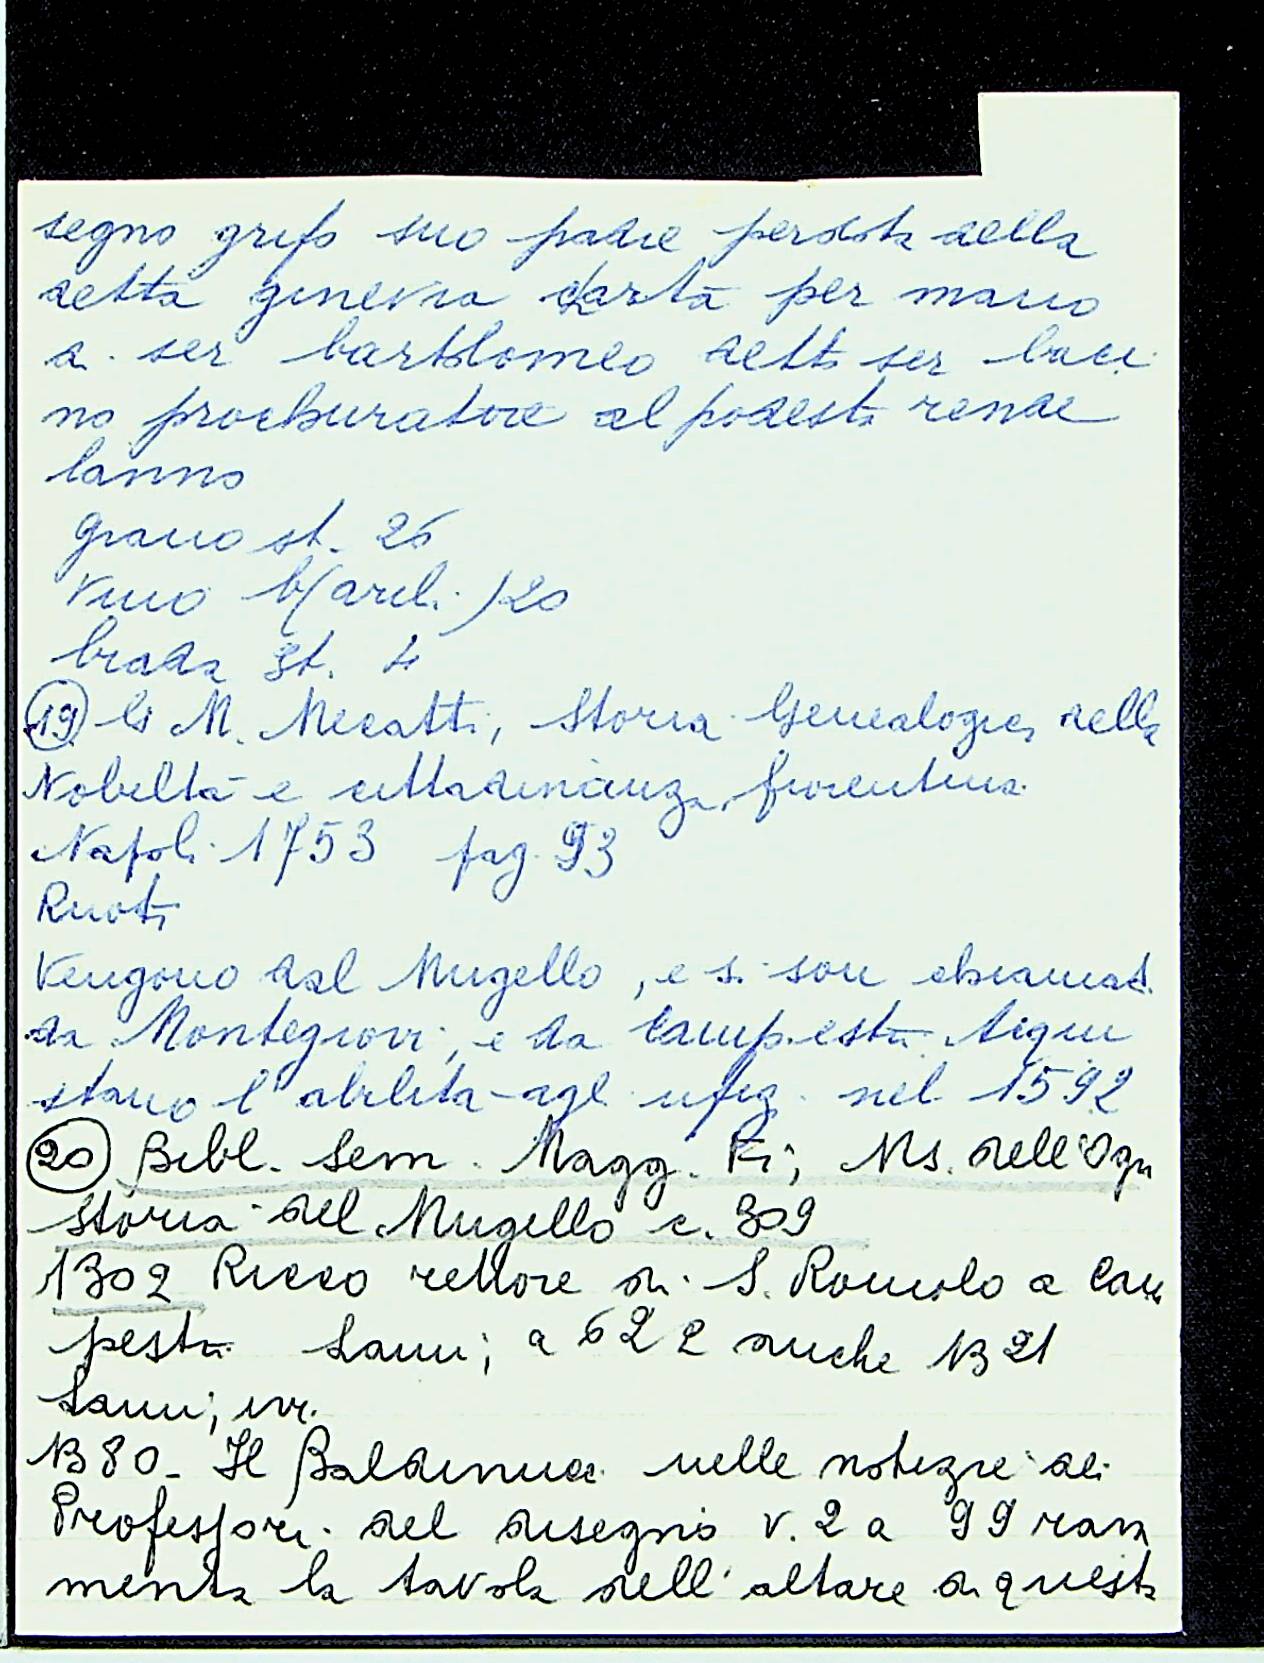 segno grifo suo padre perdota della
detta ginevra charta per mano
di ser bartolomeo detto ser baci
no prochuratore al podesta rende
lanno
grano st. 26
vino b(arili) 20
biada st. 4
(19) G M. Mecatti, Storia Genealogica della
Nobiltà e cittadinanza fiorentina
Napoli 1753 pag. 93
Ruoti
Vengono dal Mugello, e si son chiamati
da Montegiovi, e da Campestri. Aiqui
stano l'abilità agl ufiz. nel 1592
(20) Bibl. Sem. Magg. Fi; Ms. dell'Ogni
storia del Mugello c. 309
1302 Ricco rettore di S. Romolo a Cam
pestri Lami; a 622 anche 1321
Lami, ivi.
1380 - Il Baldinucci nelle notizie dei
Professori del disegno v. 2 a 99 ram
menta la tavola dell'altare di questa